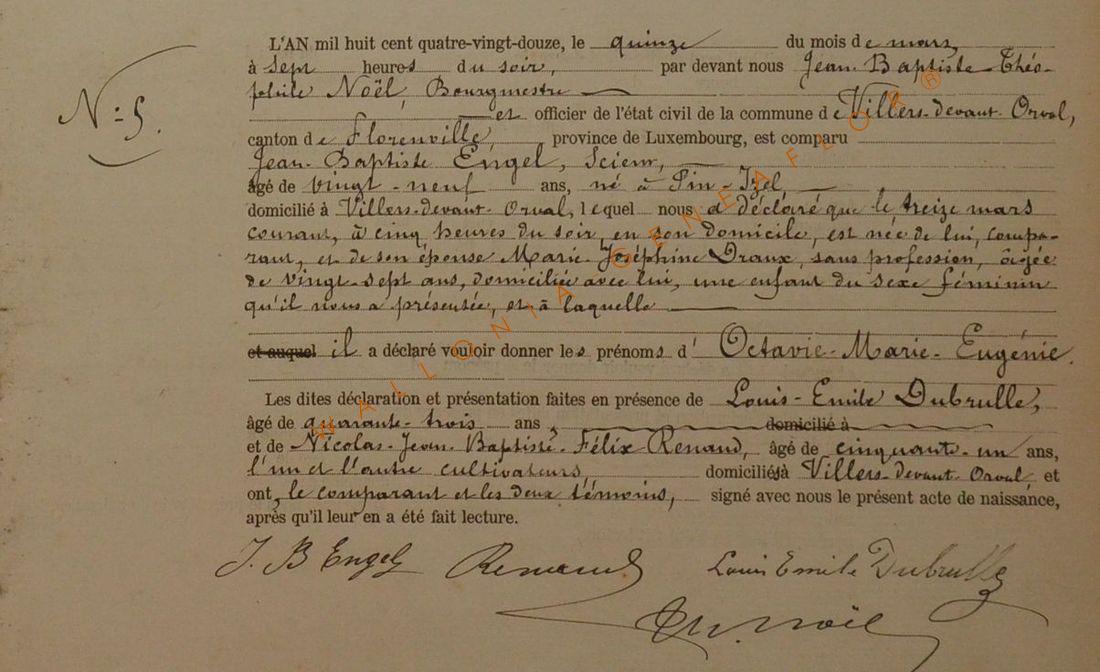 N.º 5.
L'AN mil huit cent quatre-vingt-douze, le quinze du mois de mars,
à sept heures du soir, par devant nous Jean-Baptiste-Théo-
phile Noël, Bourgmestre
et officier de l'état civil de la commune de Villers-devant-Orval,
canton de Florenville, province de Luxembourg, est comparu
Jean-Baptiste Engel, Scieur,
âgé de vingt-neuf ans, né à Pin-Izel,
domicilié à Villers-devant-Orval, lequel nous a déclaré que le treize mars
courant, à cinq heures du soir, en son domicile, est née de lui, compa-
rant, et de son épouse Marie-Joséphine Draux, sans profession, âgée
de vingt-sept ans, domiciliée avec lui, une enfant du sexe féminin
qu'il nous a présentée, et à laquelle
et auquel il a déclaré vouloir donner les prénoms d'Octavie-Marie-Eugénie.
Les dites déclaration et présentation faites en présence de Louis-Emile Dubrulle,
âgé de quarante-trois ans, domicilié à
et de Nicolas-Jean-Baptiste-Félix Renaud, âgé de cinquante-un ans,
l'un et l'autre cultivateurs, domiciliés à Villers-devant-Orval, et
ont, le comparant et les deux témoins, signé avec nous le présent acte de naissance,
après qu'il leur en a été fait lecture.
J. B Engel Renaud Louis Emile Dubrulle
Th. Noël
WALLONIA GENEAFLOR ®